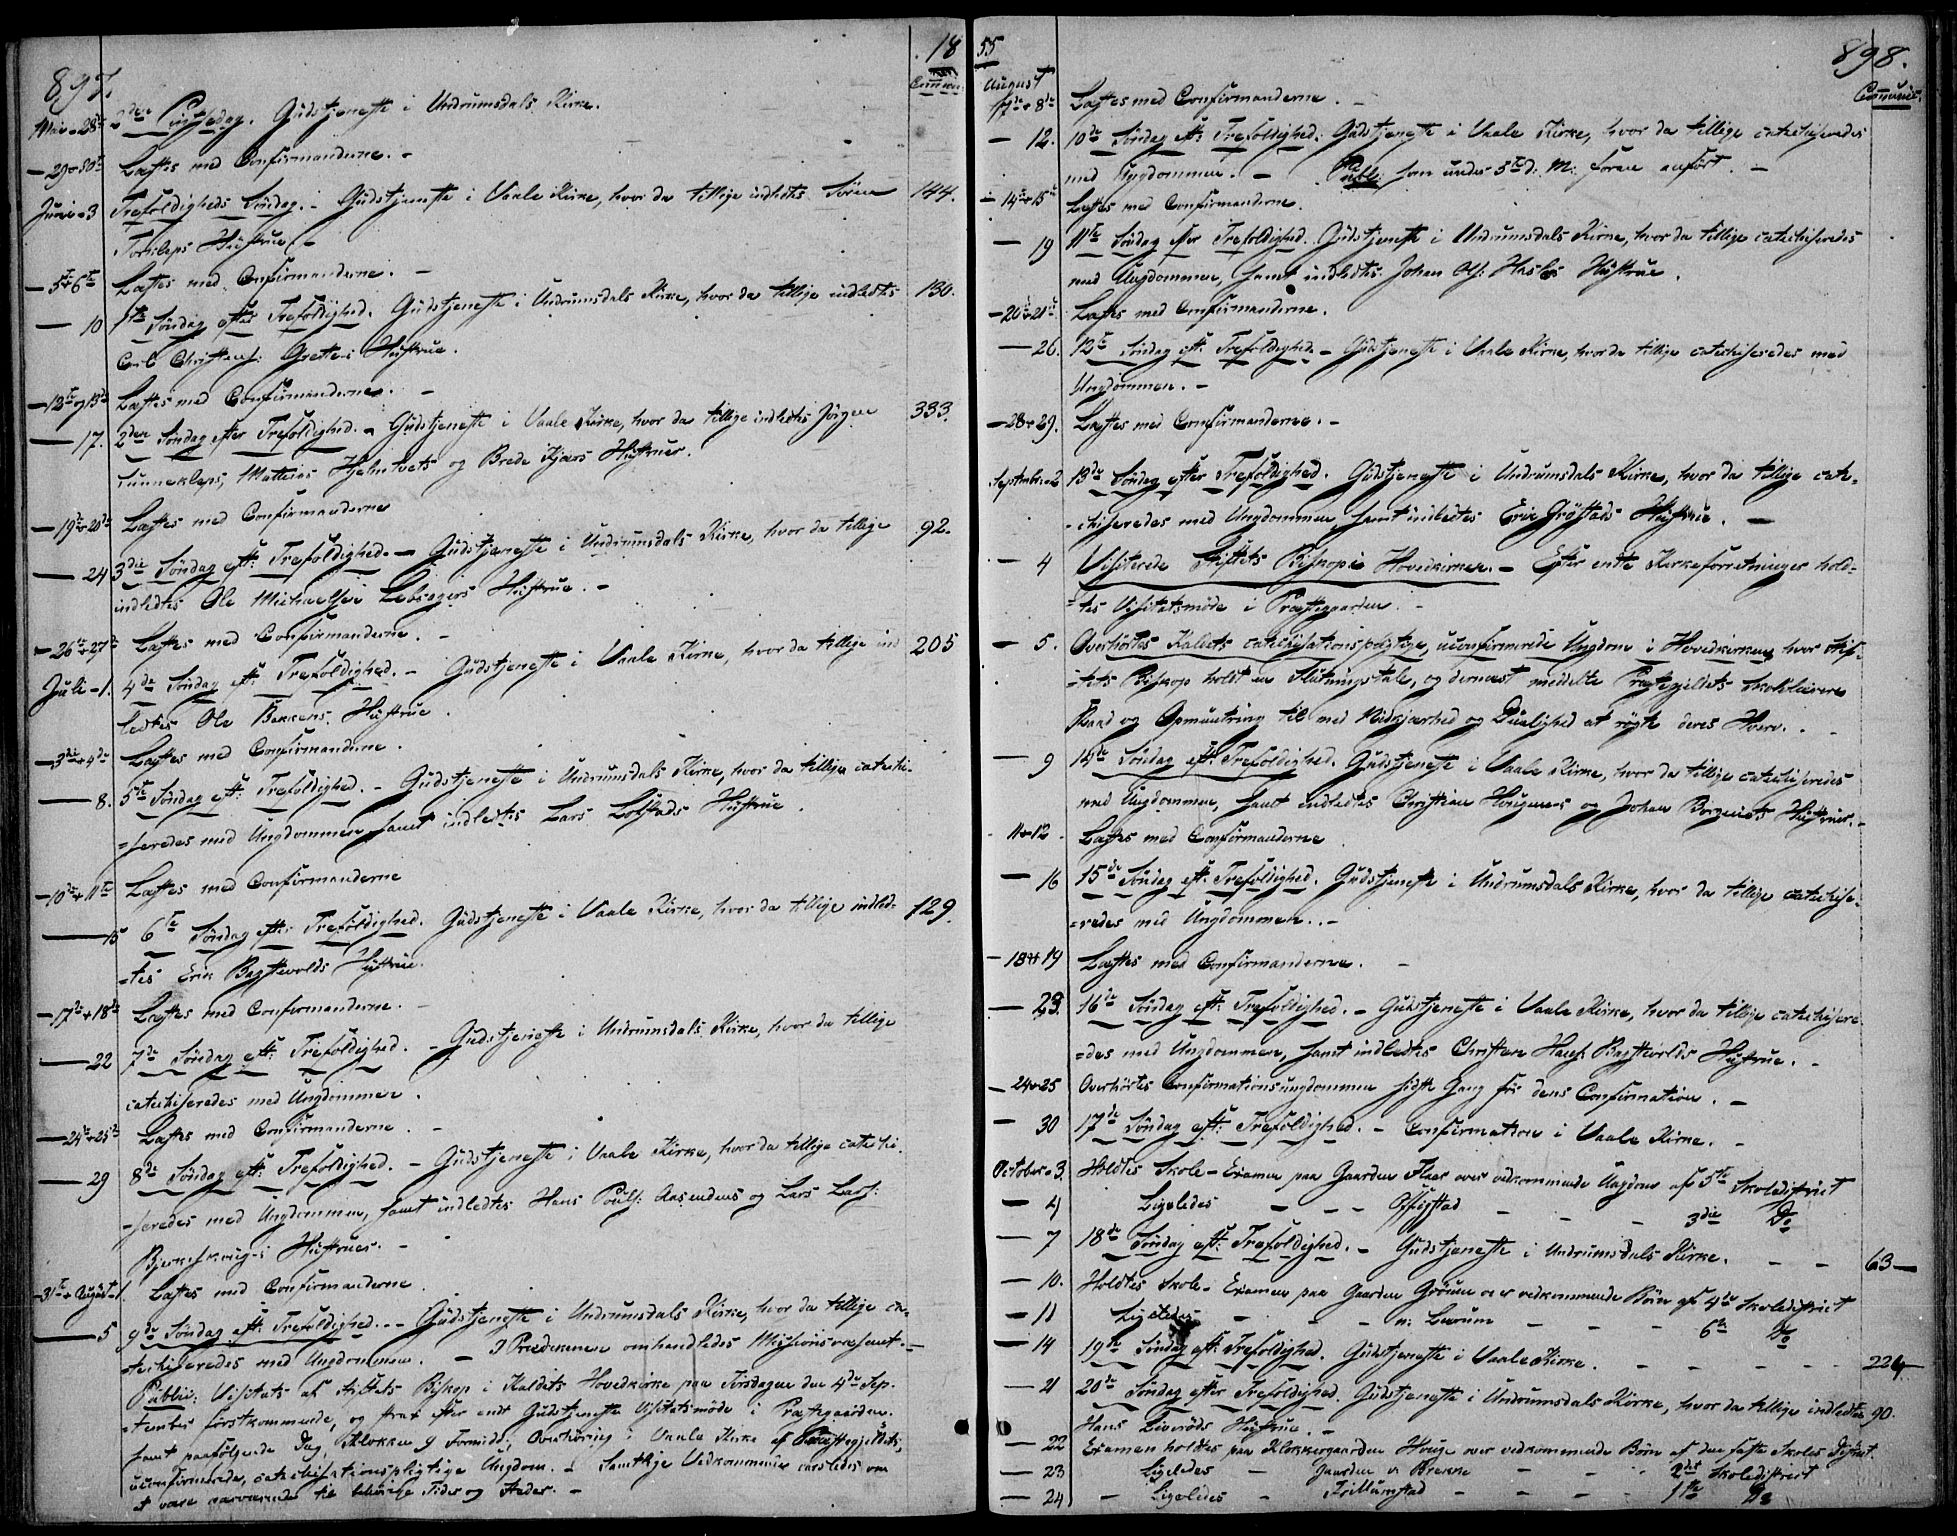 897. 18
Commun:
Mai - 28de 2den Pintsedag. Gudstjeneste i Undrumsdals Kirke.
- 29 + 30te Læstes med Confirmanderne. -
Juni - 3 Trefoldigheds Søndag. - Gudstjeneste i Vaale Kirke, hvor da tillige indledtes Sören 144.
Hustrue. -
- 5te + 6te Læstes med Confirmanderne. -
- 10 1ste Søndag efter Trefoldighed. Gudstjeneste i Undrumsdals Kirke, hvor da tillige indledtes 130.
Carl Christens: Grette's Hustrue.
- 12te og 13de Læstes med Confirmanderne. -
- 17. 2den Søndag efter Trefoldighed. - Gudstjeneste i Vaale Kirke, hvor da tillige indledtes Jörgen 333.
Mathias Hjelmtvets og Brede Kjærs Hustruer.
- 19de + 20de Læstes med Confirmanderne
- 24 3die Søndag eft: Trefoldighed. - Gudstjeneste i Undrumsdals Kirke, hvor da tillige 92.
indledtes Ole Michaelsen Hustrue. -
- 26de + 27de Læstes med Confirmanderne. -
Juli - 1. 4de Søndag eft: Trefoldighed. - Gudstjeneste i Vaale Kirke, hvor da tillige ind 205
ledtes Ole Bakkens Hustrue.
- 3die + 4de Læstes med Confirmanderne.
- 8. 5te Søndag eft: Trefoldighed. - Gudstjeneste i Undrumsdals Kirke, hvor da tillige catechi-
=seredes med Ungdommen samt indledtes Lars Hustrue.
- 10de + 11te Læstes med Confirmanderne
- 15 6te Søndag efter Trefoldighed. Gudstjeneste i Vaale Kirke, hvor da tillige indled- 129.
=tes Erik Bagstevolds Hustrue.
- 17de + 18de Læstes med Confirmanderne. -
- 22 7de Søndag eft: Trefoldighed. - Gudstjeneste i Undrumsdals Kirke, hvor da tillige
catechiseredes med Ungdommen.
- 24de + 25de Læstes med Confirmanderne. -
- 29 8de Søndag eft: Trefoldighed. - Gudstjeneste i Vaale Kirke, hvor da tillige catechi-
=seredes med Ungdommen, samt indledtes Hans Pouls: Aasendens og Lars Lars:
Hustruer. -
- 31te + August - 1. Læstes med Confirmanderne.
- 5 9de Søndag eft: Trefoldighed. - Gudstjeneste i Undrumsdals Kirke, hvor da tillige ca-
=techiseredes med Ungdommen. - I Prædikenen omhandledes Missionsvæsenet. -
Public: Visitats af Stiftets Biskop i Kaldets Hovedkirke paa Tirsdagen den 4de Sep-
=tember förstkommende, og strax efter endt Gudstjeneste Visitatsmöde i Præstegaarden.
samt paafølgende Dag, Klokken 9 Formidd:, Overhøring i Vaale Kirke af Præstegjeldets
uconfirmerede, catechisationspligtige Ungdom. - Samtlige Vedkommende varsledes om
at være nærværende til behørige Tider og Steder. -
55 898.
August Communic:
17de + 8de Læstes med Confirmanderne. -
- 12. 10de Søndag eft: Trefoldighed. Gudstjeneste i Vaale Kirke, hvor da tillige catechiseredes
med Ungdommen. - Publ: som under 5te d: M: foran anført. -
- 14de + 15de Læstes med Confirmanderne.
- 19 11te Søndag efter Trefoldighed. Gudstjeneste i Undrumsdals Kirke, hvor da tillige catechiseredes
med Ungdommen, samt indledtes Johan Ols: Hasles Hustrue.
- 20de + 21de Læstes med Confirmanderne.
- 26. 12te Søndag eft: Trefoldighed. - Gudstjeneste i Vaale Kirke, hvor da tillige catechiseredes med
Ungdommen. -
- 28 + 29. Læstes med Confirmanderne. -
September - 2 13de Søndag efter Trefoldighed. Gudstjeneste i Undrumsdals Kirke, hvor da tillige cate-
=chiseredes med Ungdommen, samt indledtes Eric Hustrue. -
- 4 Visiterede Stiftets Biskop i Hovedkirken. - Efter endte Kirkeforretninger hold-
=tes Visitatsmöde i Præstegaarden. -
- 5. Overhørtes Kaldets catechisationspligtige, uconfirmerede Ungdom i Hovedkirken, hvor Stif-
=tets Biskop holdt en Slutningstale, og dernæst meddelte Præstegjeldets Skolelærere
Raad og Opmuntring til med Nidkjærhed og Duelighed at røgte deres Hverv. -
- 9 14de Søndag eft: Trefoldighed. Gudstjeneste i Vaale Kirke, hvor da tillige catechiseredes
med Ungdommen, samt indledtes Christian Haugenes og Johan Hustruer. -
- 11 + 12. Læstes med Confirmanderne
- 16 15de Søndag eft: Trefoldighed. Gudstjeneste i Undrumsdals Kirke, hvor da tillige catechise-
=redes med Ungdommen. -
- 18 + 19 Læstes med Confirmanderne. -
- 23. 16de Søndag eft: Trefoldighed. - Gudstjeneste i Vaale Kirke, hvor da tillige catechisere-
=des med Ungdommen, samt indledtes Christen Hans: Bagstevolds Hustrue. -
- 24 + 25 Overhørtes Confirmationsungdommen sidste Gang før dens Confirmation. -
- 30 17de Søndag eft: Trefoldighed. - Confirmation i Vaale Kirke. -
October - 3. Holdtes Skole-Examen paa Gaarden Flaar over vedkommende Ungdom af 5te Skoledistrict
- 4 Ligeledes - - - - - - 3die Do
- 7 18de Søndag eft: Trefoldighed. - Gudstjeneste i Undrumsdals Kirke. - - 63 -
- 10. Holdtes Skole-Examen paa Gaarden over vedkommende Børn af 4de Skoledistrict
- 11 Ligeledes - - - n: - - - 6te Do
- 14 19de Søndag eft: Trefoldighed. Gudstjeneste i Vaale Kirke. - - - - 224
- 21 20de Søndag efter Trefoldighed. Gudstjeneste i Undrumsdals Kirke, hvor da tillige indledtes 90.
Hans Hustrue. -
- 22 Examen holdtes paa Klokkergaarden Hauge over vedkommende Børn af den faste Skoles District.
- 23 Ligeledes - Gaarden n: Brekke - - - 2det Skoledistrict
- 24 - Ligeledes - - - - - 1ste Do